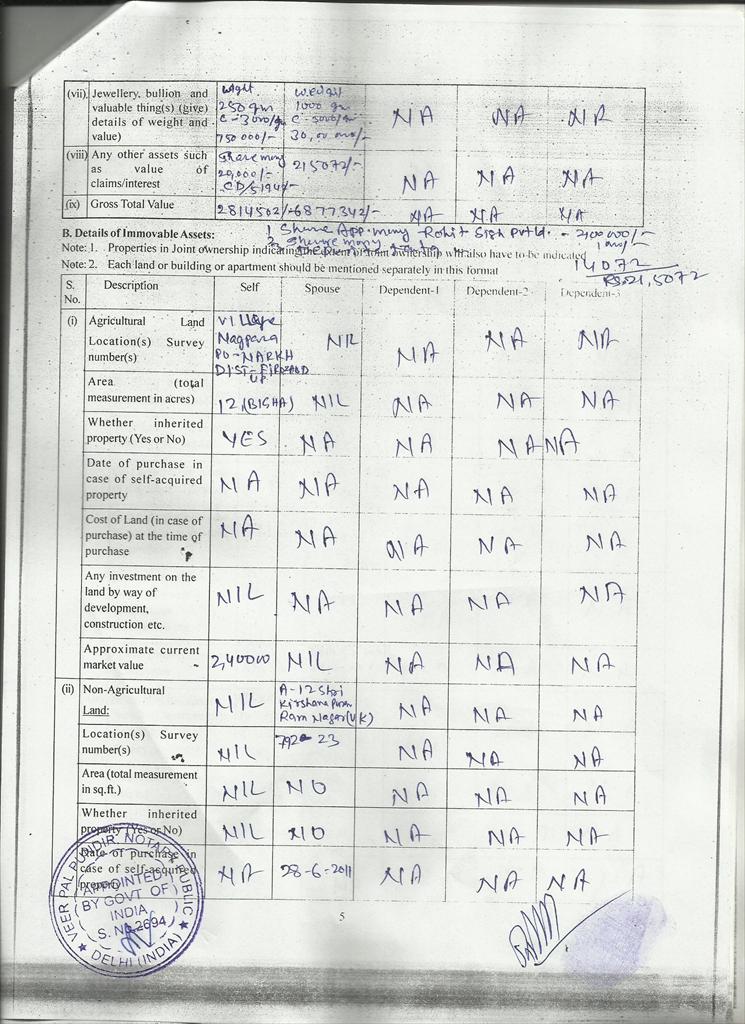 (vii) Jewellery, bullion and valuable thing(s) (give) details of weight and value) 250 gm 750000/- 1000 gm 30,00,000/- NA NA NA
(viii) Any other assets such as value of claims/interest 20,000/- 215072/- NA NA NA
(ix) Gross Total Value 2814502/- 6877342/- NA NA NA
B. Details of Immovable Assets:
1 Share App. money Rohit Sigh Pvt Ltd. - 200000/-
Note: 1. Properties in Joint ownership indicating the extent of joint ownership will also have to be indicated
14072
Rs. 21,5072
Note: 2. Each land or building or apartment should be mentioned separately in this format
S. No. Description Self Spouse Dependent-1 Dependent-2 Dependent-3
(i) Agricultural Land Location(s) Survey number(s) Village Nagpara PO-NARKH DIST-FIROZABAD UP NIL NA NA NA
Area (total measurement in acres) 12,(BIGHA) NIL NA NA NA
Whether inherited property (Yes or No) YES NA NA NA NA
Date of purchase in case of self-acquired property NA NA NA NA NA
Cost of Land (in case of purchase) at the time of purchase NA NA NA NA NA
Any investment on the land by way of development, construction etc. NIL NA NA NA NA
Approximate current market value 2,40000 NIL NA NA NA
(ii) Non-Agricultural Land: NIL A-12 Shri Kirshana Puram Ram Nagar (UK) NA NA NA
Location(s) Survey number(s) NIL 792-23 NA NA NA
Area (total measurement in sq.ft.) NIL NO NA NA NA
Whether inherited property (Yes or No) NIL NO NA NA NA
Date of purchase in case of self-acquired property NA 28-6-2011 NA NA NA
5
VEER PAL PUNDIR. NOTARY PUBLIC
APPOINTED
BY GOVT OF
INDIA
S. NO. 2694
DELHI (INDIA)